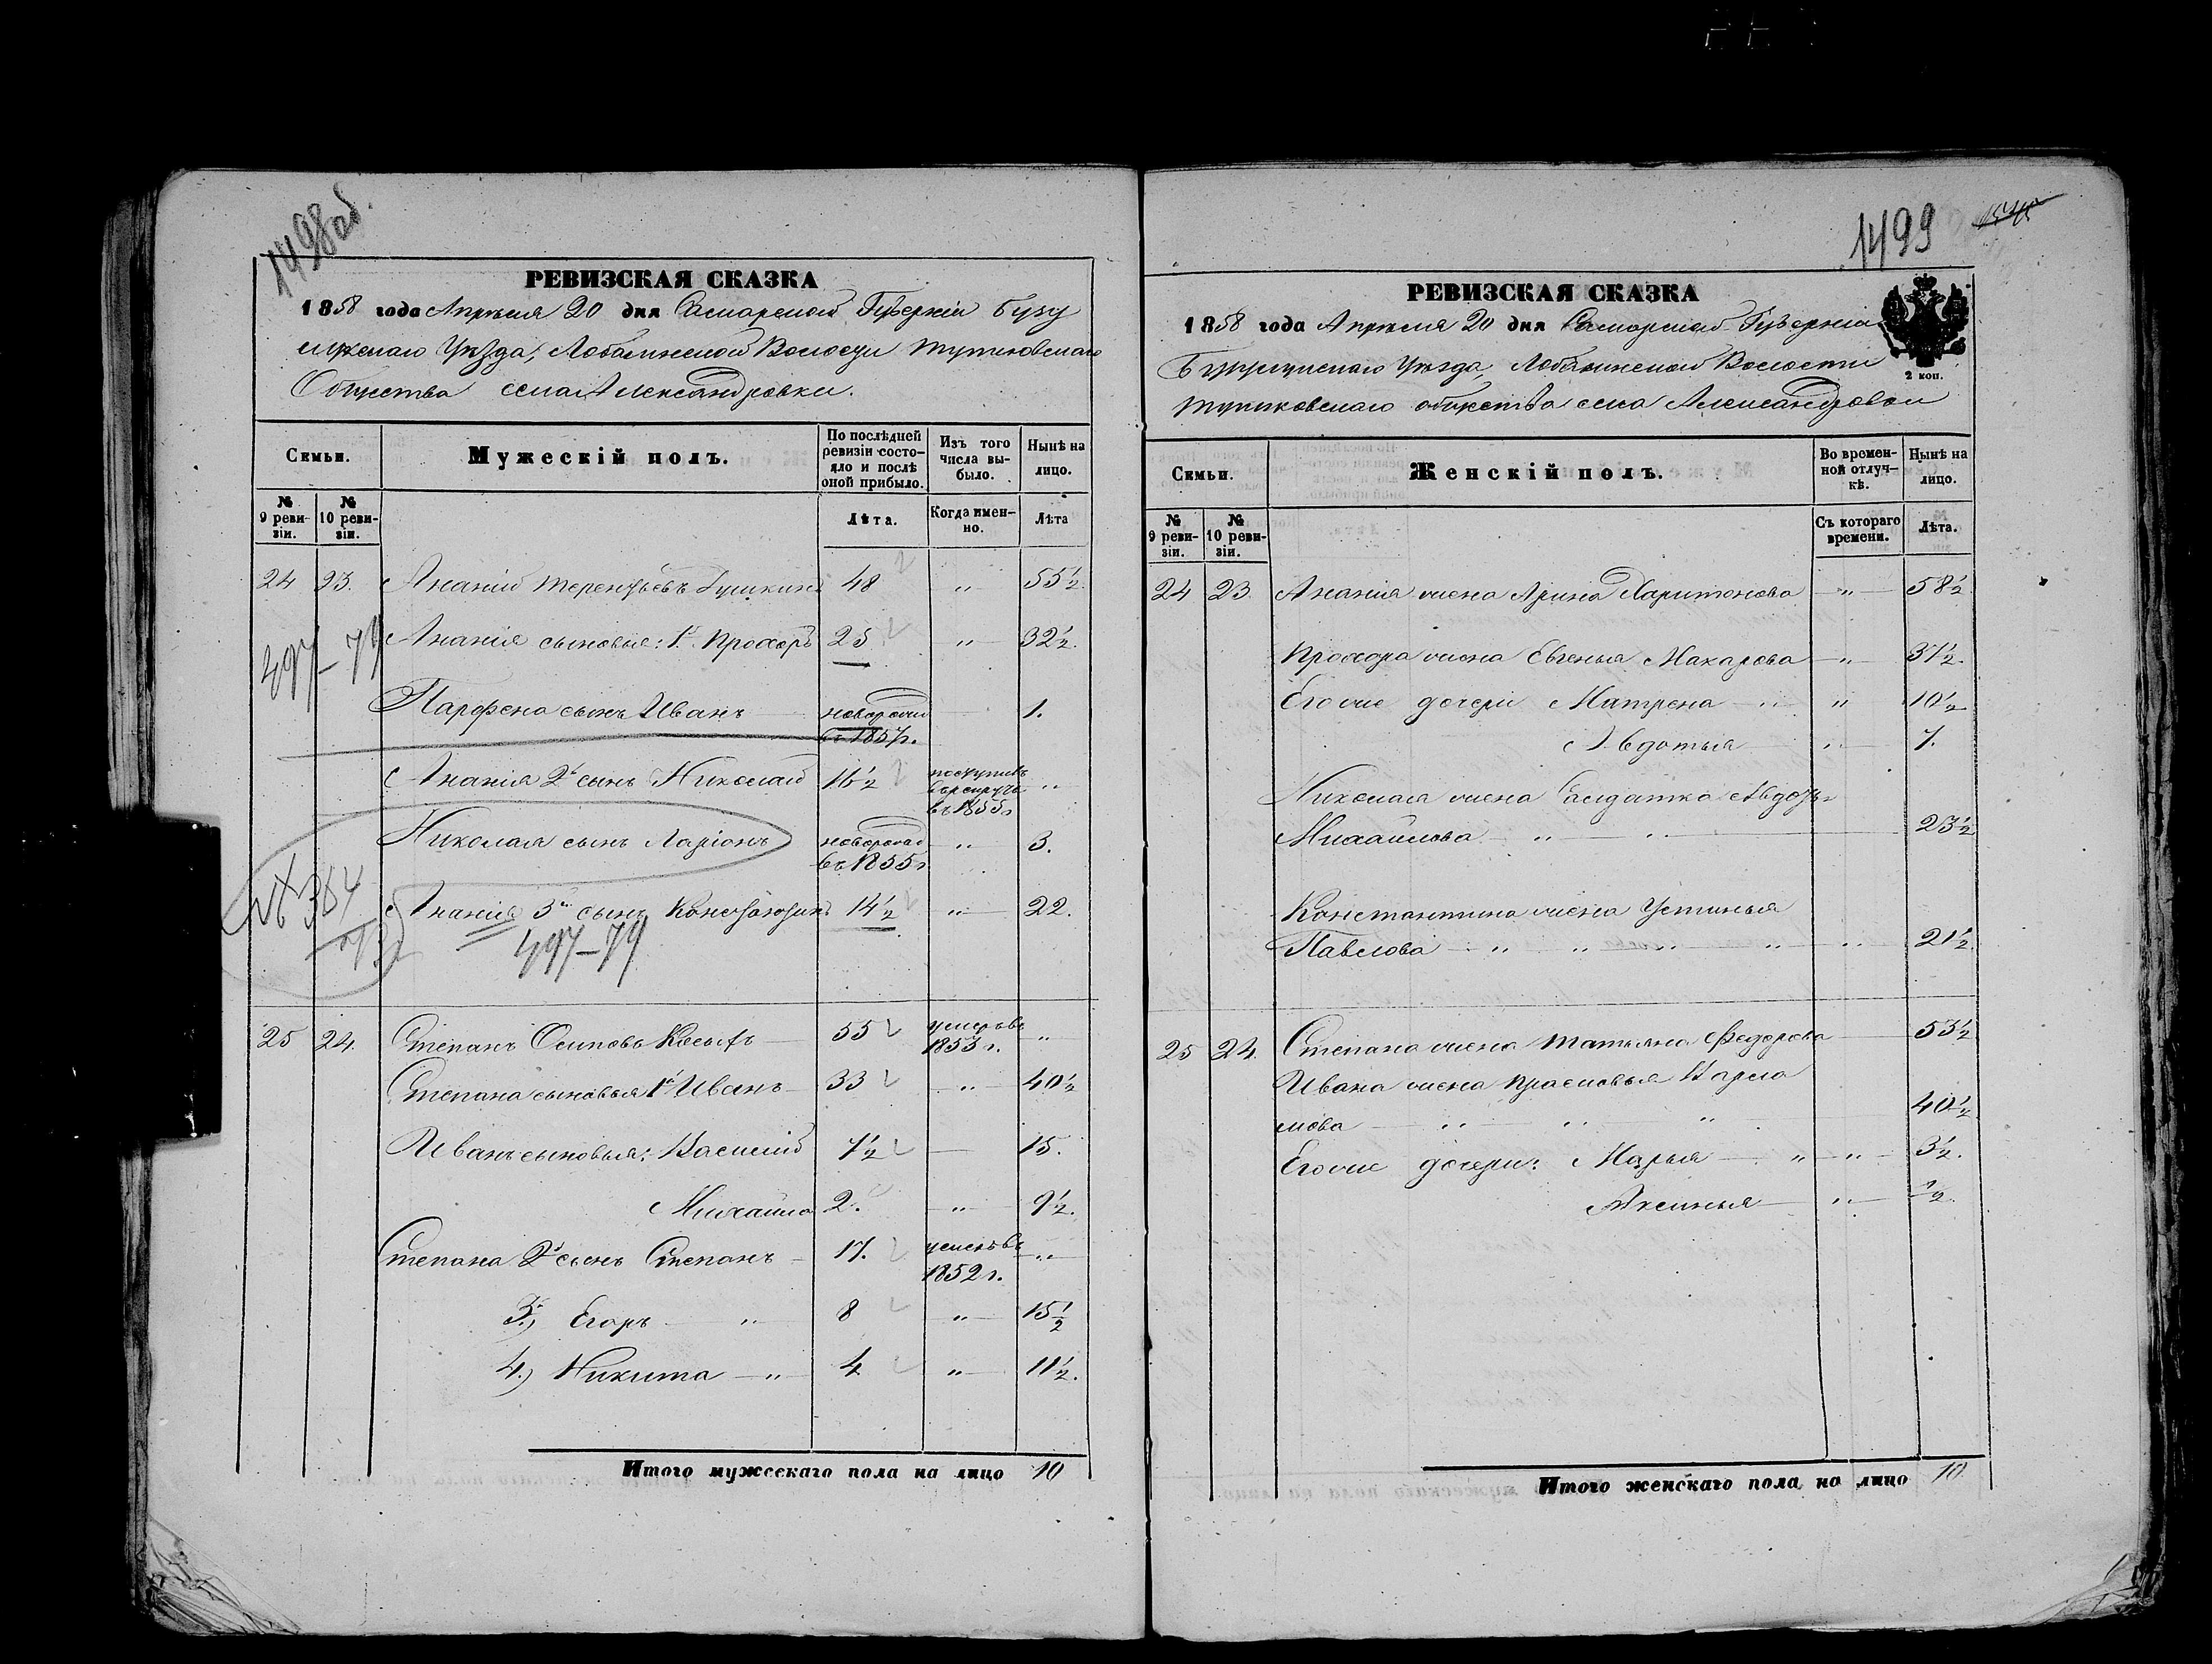 1498 об.
РЕВИЗСКАЯ СКАЗКА
1858 года Апреля 20 дня Самарской Губерніи Бузу
лукскаго Уѣзда, Лобазинской Волости
Общества села Александровки.
Семьи. Мужескій полъ. По послѣдней ревизіи состояло и послѣ оной прибыло. Изъ того числа выбыло. Нынѣ на лицо.
№ 9 ревизіи. № 10 ревизіи. Лѣта. Когда именно. Лѣта
24 23. Ананій Терентьевъ 48 „ 55½
497–79 Ананія сыновья: 1й Прохоръ 25 „ 32½
сынъ Иванъ новорожд 1.
въ 1857г.
Ананія 2й сынъ Николай 16½ поступилъ в рекруты въ 1855г „
Николая сынъ Ларіонъ новорожд „ 3.
въ 1855г
№ 364
Ананія 3й сынъ Константинъ 14½ „ 22.
497–79
25 24. Степанъ Осиповъ Косыхъ 55 умеръ въ 1853 г. „
Степана сыновья 1й Иванъ 33 „ 40½
Ивана сыновья: Василій 7½ 15.
Михайла 2. „ 9½.
Степана 2й сынъ Степанъ 17. умеръ въ 1852 г. „
3.) Егоръ „ 8 „ 15½
4.) Никита „ 4 „ 11½.
Итого мужескаго пола на лицо 10
1499
РЕВИЗСКАЯ СКАЗКА
1858 года Апреля 20 дня Самарской Губерніи
Бузулукскаго Уѣзда, Лобазинской Волости
общества села Александровки
2 коп.
Семьи. Женскій полъ. Во временной отлучкѣ. Нынѣ на лицо.
№ 9 ревизіи. № 10 ревизіи. Съ котораго времени. Лѣта.
24 23 Ананія жена Арина Харитонова „ 58½
Прохора жена Евгенья Макарова „ 37½.
Его же дочери Матрена „ „ 10½
Авдотья „ 7.
Николая жена Салдатка Авдотья
Михайлова „ „ 23½
Константина жена Устинья
Павлова „ „ „ „ „ 21½
25 24 Степана жена Татьяна Федорова 53½
Ивана жена Прасковья Варла
мова „ „ „ 40½
Его же дочери: Марья „ „ 3½.
Аксинья „ ½.
Итого женскаго пола на лицо 10